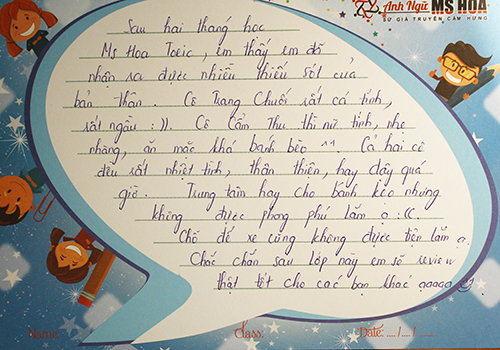 Anh Ngữ MS HOA
SỨ GIẢ TRUYỀN CẢM HỨNG
Sau hai tháng học
Ms Hoa Toeic, em thấy em đã
nhận ra được nhiều thiếu sót của
bản thân. Cô Trang Chuối rất cá tính,
rất ngầu :)). Cô Cẩm Thu thì nữ tính, nhẹ
nhàng, ăn mặc khá bánh bèo ^^. Cả hai cô
đều rất nhiệt tình, thân thiện, hay dạy quá
giờ. Trung tâm hay cho bánh kẹo nhưng
không được phong phú lắm ạ :((.
Chỗ để xe cũng không được tiện lắm ạ.
Chắc chắn sau lớp này em sẽ review
thật tốt cho các bạn khác ạaaaa
Name: Class: Date: .../.../...